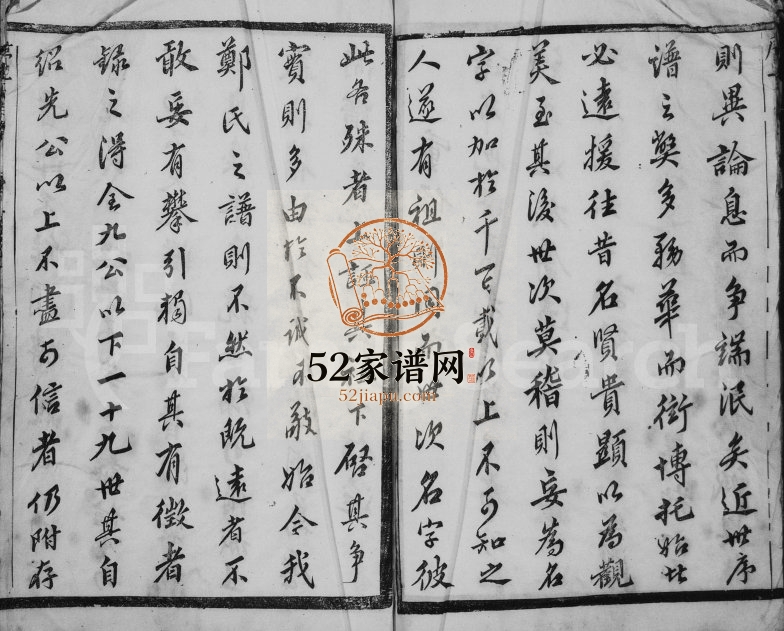 則異論息而爭端泯矣近世序
譜之弊多務華而街博托始
必遠援往昔名賢貴顯以為觀
美至其後世次莫稽則妄為名
字以加於千百載以上不可知之
人遂有祖同而世次名字彼
此各殊者下啓其爭
實則多由於不誠不敬始今我
鄭氏之譜則不然於既遠者不
敢妄有攀引獨自其有徵者
錄之得全九公以下一十九世其自
紹先公以上不盡可信者仍附存
52家谱网
52jiapu.com
FamilySearch